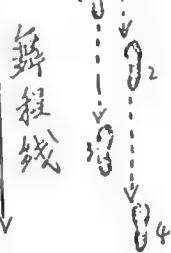 舞程线
2
3
4